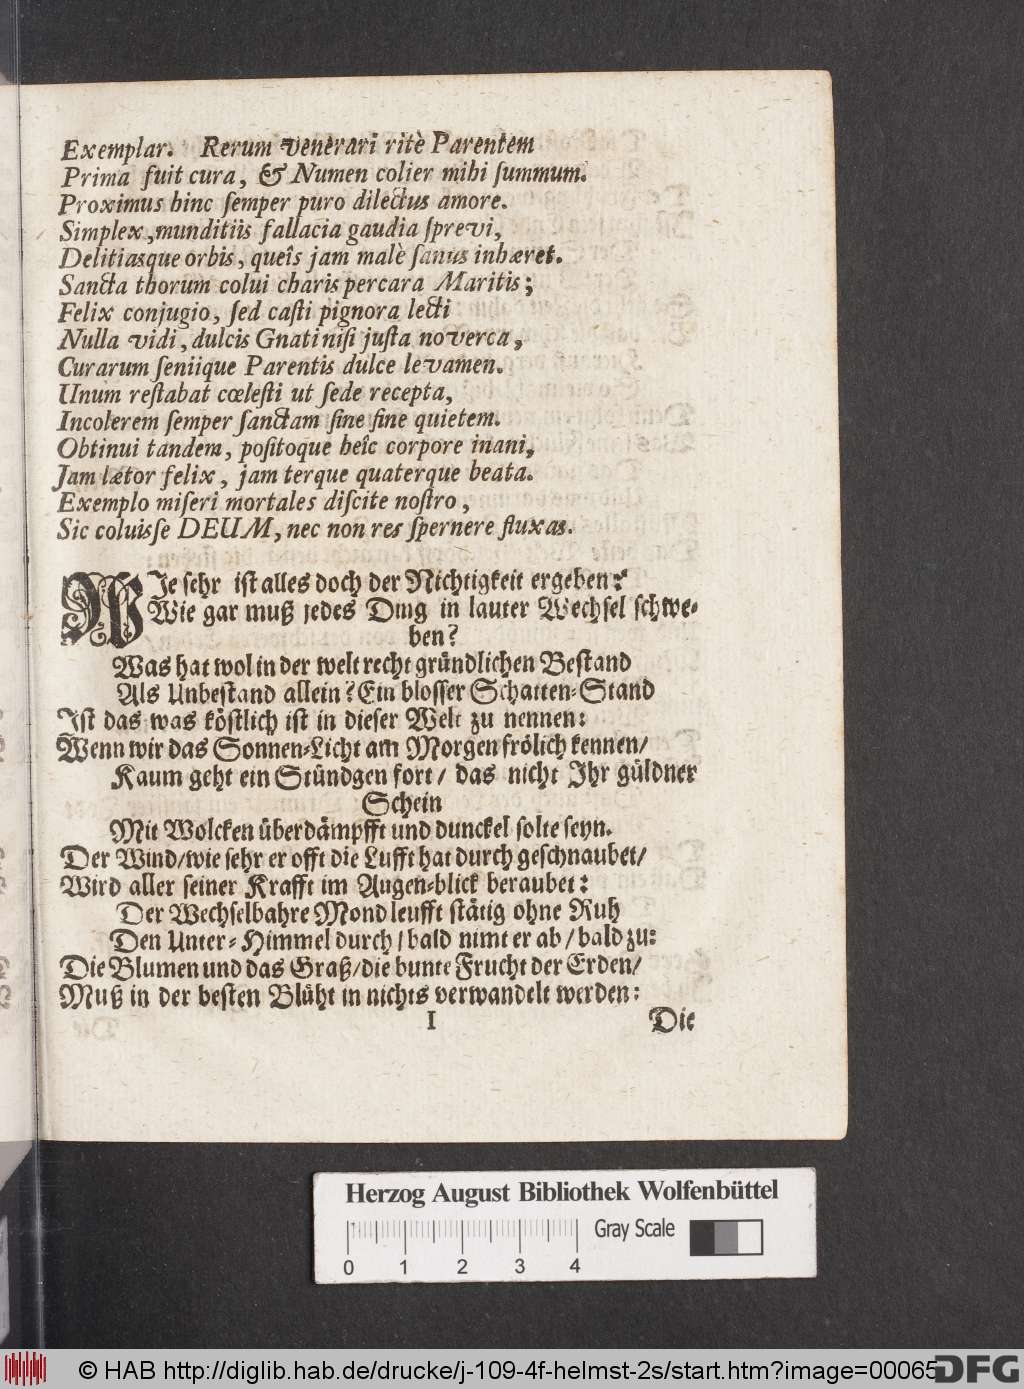 Exemplar. Rerum venerari ritè Parentem
Prima fuit cura, & Numen colier mihi ſummum.
Proximus hinc ſemper puro dilectus amore.
Simplex, munditiis fallacia gaudia ſprevi,
Delitiasque orbis, queîs jam malè ſanus inhæret.
Sancta thorum colui charis percara Maritis;
Felix conjugio, ſed caſti pignora lecti
Nulla vidi, dulcis Gnati niſi juſta noverca,
Curarum ſeniique Parentis dulce levamen.
Unum reſtabat cœleſti ut ſede recepta,
Incolerem ſemper ſanctam ſine fine quietem.
Obtinui tandem, poſitoque heîc corpore inani,
Jam lætor felix, jam terque quaterque beata.
Exemplo miſeri mortales diſcite noſtro,
Sic coluiſſe DEUM, nec non res ſpernere fluxas.
WJe ſehr iſt alles doch der Nichtigkeit ergeben:
Wie gar muß jedes Ding in lauter Wechſel ſchwe-
ben?
Was hat wol in der welt recht gründlichen Beſtand
Als Unbeſtand allein? Ein bloſſer Schatten-Stand
Jſt das was köſtlich iſt in dieſer Welt zu nennen:
Wenn wir das Sonnen-Licht am Morgen frölich kennen/
Kaum geht ein Stündgen fort/ das nicht Jhr güldner
Schein
Mit Wolcken überdämpfft und dunckel ſolte ſeyn.
Der Wind/wie ſehr er offt die Lufft hat durch geſchnaubet/
Wird aller ſeiner Krafft im Augen-blick beraubet:
Der Wechſelbahre Mond leufft ſtätig ohne Ruh
Den Unter-Himmel durch/bald nimt er ab/bald zu:
Die Blumen und das Graß/die bunte Frucht der Erden/
Muß in der beſten Blüht in nichts verwandelt werden:
I Die
Herzog August Bibliothek Wolfenbüttel
Gray Scale
0 1 2 3 4
© HAB http://diglib.hab.de/drucke/j-109-4f-helmst-2s/start.htm?image=00065
DFG